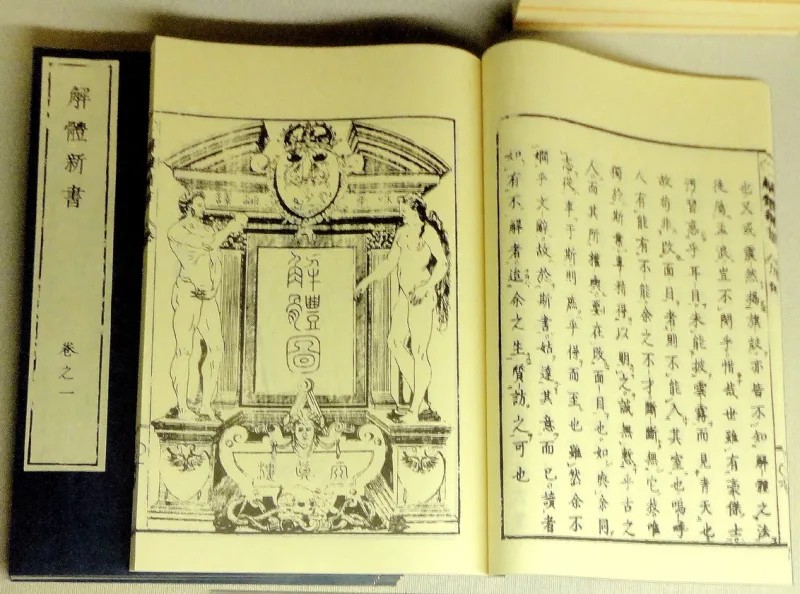 解體新書
卷之一
解體圖
也又或靡然揚旗鼓亦皆不知解體之法
徒屬孟浪豈不闕乎惜哉世雖有豪傑士
汚習惑乎耳目未能披雲霧而見青天也
故苟非改面目者則不能入其室也嗚呼
人有能有不能余之不才斷斷無它技唯
獨於斯業專精得以明之誠無慙乎古之
人而其所權輿要在改面目也如夫余同
志從事于斯則庶乎得而至也雖然余不
嫺乎文辭故於斯書姑達其意而已讀者
如有不解者迨余之生質訪之可也